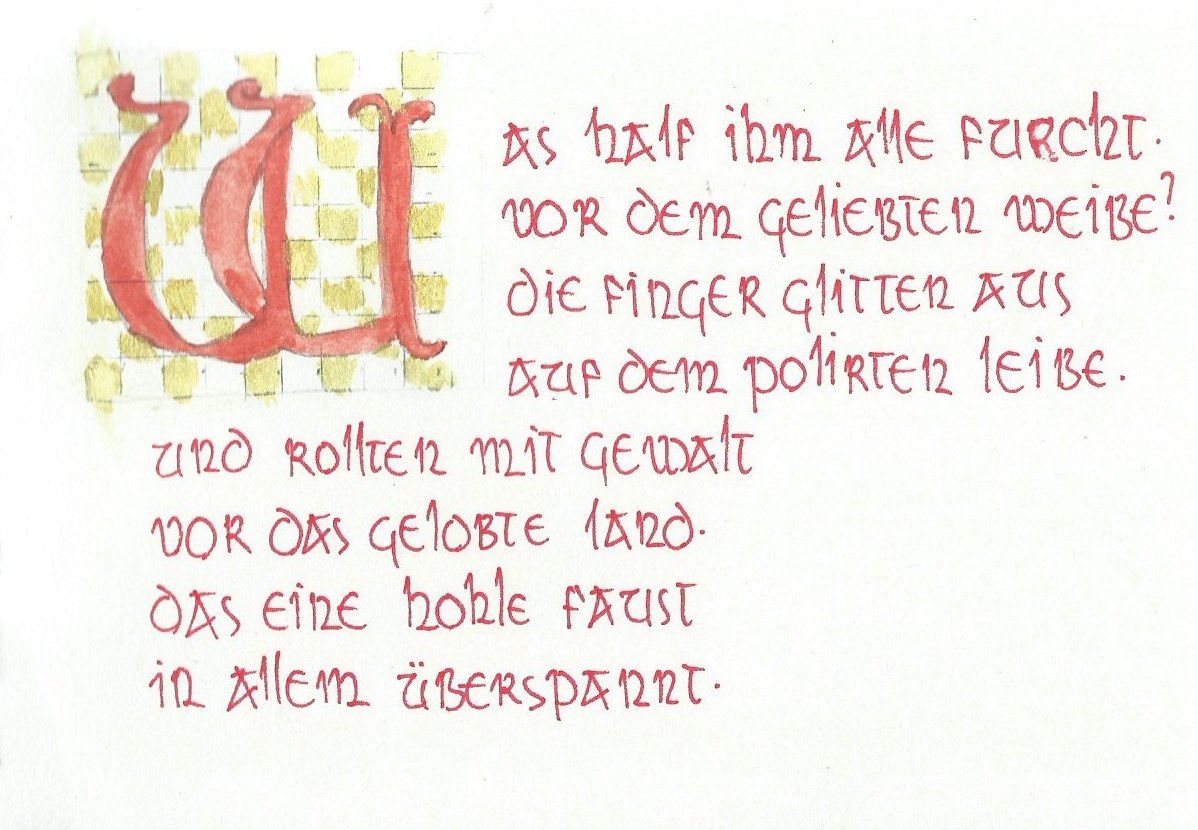 Was half ihm alle furcht.
vor dem geliebten weibe?
die finger glitten aus
auf dem polirten leibe.
und rollten mit gewalt
vor das gelobte land.
das eine hohle faust
in allem überspannt.